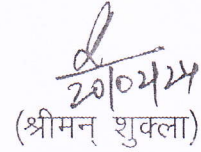 20/02/24
(श्रीमन् शुक्ला)